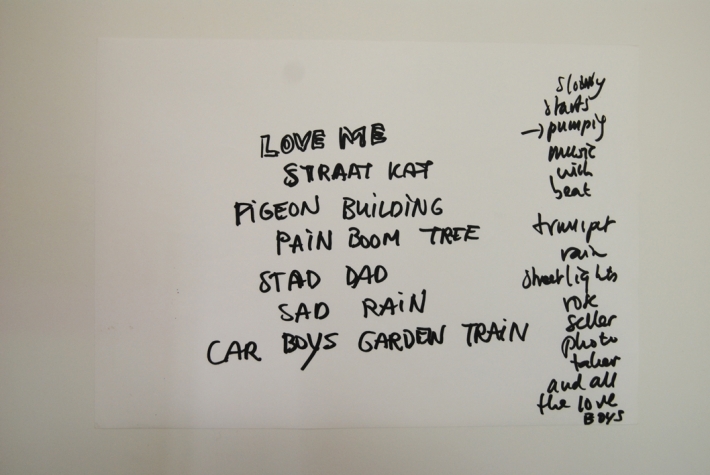 LOVE ME
STRAAT KAT
PIGEON BUILDING
PAIN BOOM TREE
STAD DAD
SAD RAIN
CAR BOYS GARDEN TRAIN
slowly
starts
→ pumpig
music
with
beat
trumpet
rain
streetlights
seller
photo
taker
and all
the love
BOYS